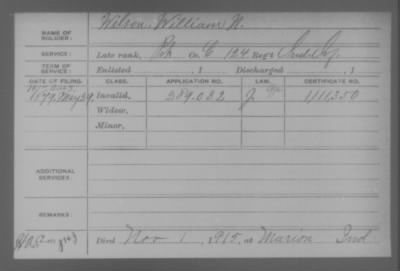 NAME OF SOLDIER: Wilson William N.
SERVICE: Late rank, Pvt Co. E 124 Reg't Ind. Inf.
TERM OF SERVICE: Enlisted , 1 Discharged , 1
DATE OF FILING. CLASS. APPLICATION NO. LAW. CERTIFICATE NO.
1879 May 29 Invalid, 289.032 1111350
Widow,
Minor,
ADDITIONAL SERVICES:
REMARKS:
Died Nov 1, 1915, at Marion Ind